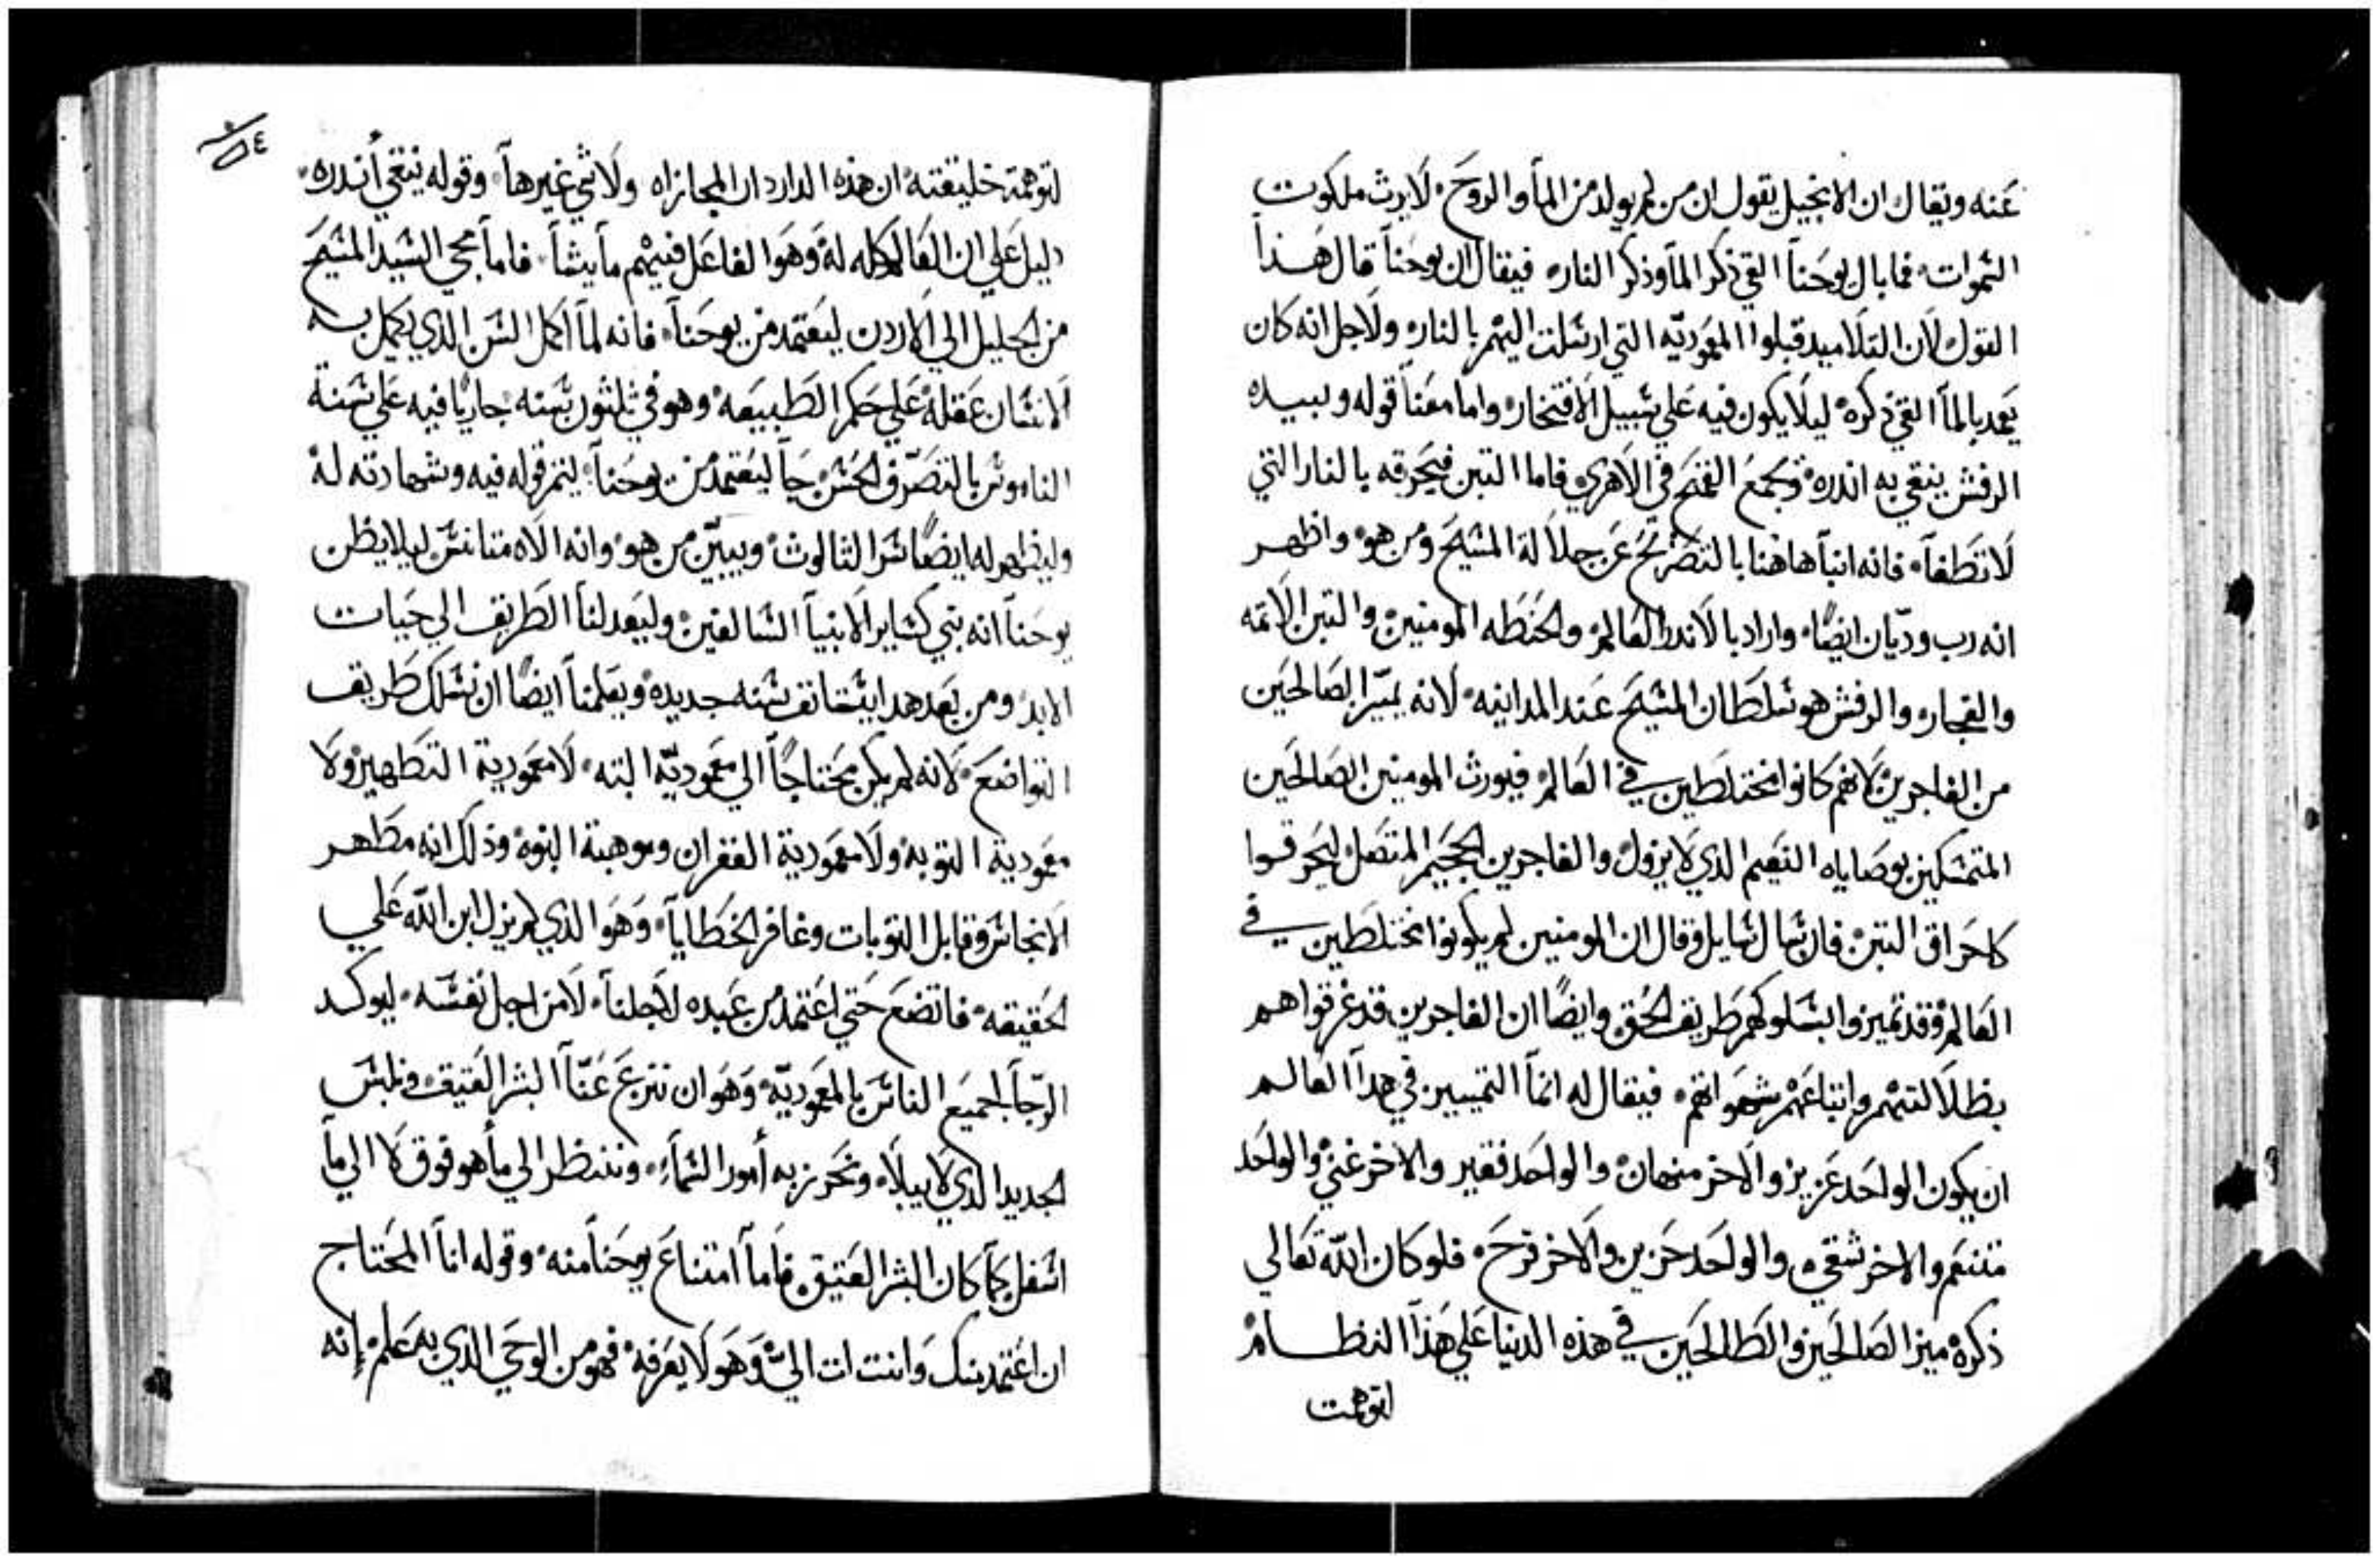 عنه ويقال ان الانجيل يقول ان من لم يولد من المآ والروح لا يرث ملكوت
السموات فما بال يوحنآ القي ذكر المآ وذكر النار فيقال ان يوحنآ قال هذا
القول لان التلاميد قبلوا المعموديّه التي ارسلت اليهم بالنار ولاجل انه كان
يعمد بالمآ القي ذكره ليلا يكون فيه علي سبيل الافتخار واما معنآ قوله وبيده
الرفش ينقي به اندره ويجمع القمح في الاهري فاما التبن فيحرقه بالنار التي
لا تطفآ فانه انبآ هاهنا بالتصريح عن جلالة المسيح ومن هو واظهر
انه رب وديّان ايضًا واراد بالاندر العالم والحنطه المومنين والتبن الاثمه
والفجار والرفش هو سلطان المسيح عند المداينه لانه يميّز الصالحين
من الفاجرين لانهم كانوا مختلطين في العالم فيورث المومنين الصالحين
المتمسكين بوصاياه النعيم الذي لا يزول والفاجرين الجحيم المتصل ليحرقوا
كاحراق التبن فان سال سايل وقال ان المومنين لم يكونوا مختلطين في
العالم فقد تميزوا بسلوكهم طريق الحق وايضًا ان الفاجرين قد غرقوا هم
بظلالتهم واتباعهم شهواتهم فيقال له انمآ التمييز في هدآ العالم
ان يكون الواحد عزيز والاخر مهان والواحد فقير والاخر غني والواحد
متنعم والاخر شقي والواحد حزين والاخر فرح فلو كان الله تعالي
ذكره ميز الصالحين والطالحين في هذه الدنيا علي هذآ النظام
لتوهمت
٥٤
لتوهمة خليقته ان هذه الدار دار المجازاه ولا شي غيرهآ وقوله ينقي أندره
دليل علي ان العالم كله له وهو الفاعل فيهم ما يشآ فامآ مجي السيد المسيح
من الجليل الي الاردن ليعتمد من يوحنآ فانه لمآ اكمل السن الدي يكمل به
الانسان عقله علي حكم الطبيعه وهو في ثلثون سنه جاريًا فيه علي سنة
الناموس بالتصرف الحسن جآ ليعتمد من يوحنآ ليتم قوله فيه وشهادته له
وليظهر له ايضًا سر التالوث ويبيّن من هو وانه الاه متانس ليلا يظن
يوحنآ انه نبي كساير الانبيآ السالفين وليعد لنآ الطريق الي حيات
الابد ومن بعد هدا يستانف سنه جديده ويعلمنآ ايضًا ان نسلك طريق
التواضع لانه لم يكن محتاجًا الي معموديّه البته لا معمودية التطهير ولا
معمودية التوبه ولا معمودية الغفران وموهبة البنوه وذلك انه مطهر
الانجاس وقابل التوبات وغافر الخطايآ وهو الذي لم يزل ابن الله علي
الحقيقه فاتضع حتي اعتمد من عبده لاجلنآ لا من اجل نفسه ليوكد
الرجآ لجميع الناس بالمعموديّه وهو ان ننزع عنّآ البشر العتيق ونلبس
الجديد الذي لا يبلا ونحرز به أمور السمآء وننظر الي مآ هو فوق لا الي مآ
اسفل كمآ كان البشر العتيق فامآ امتناع يوحنآ منه وقوله انآ المحتاج
ان اعتمد منك وانت ات اليّ وهو لا يعرفه فهو من الوحي الدي به علم إنه